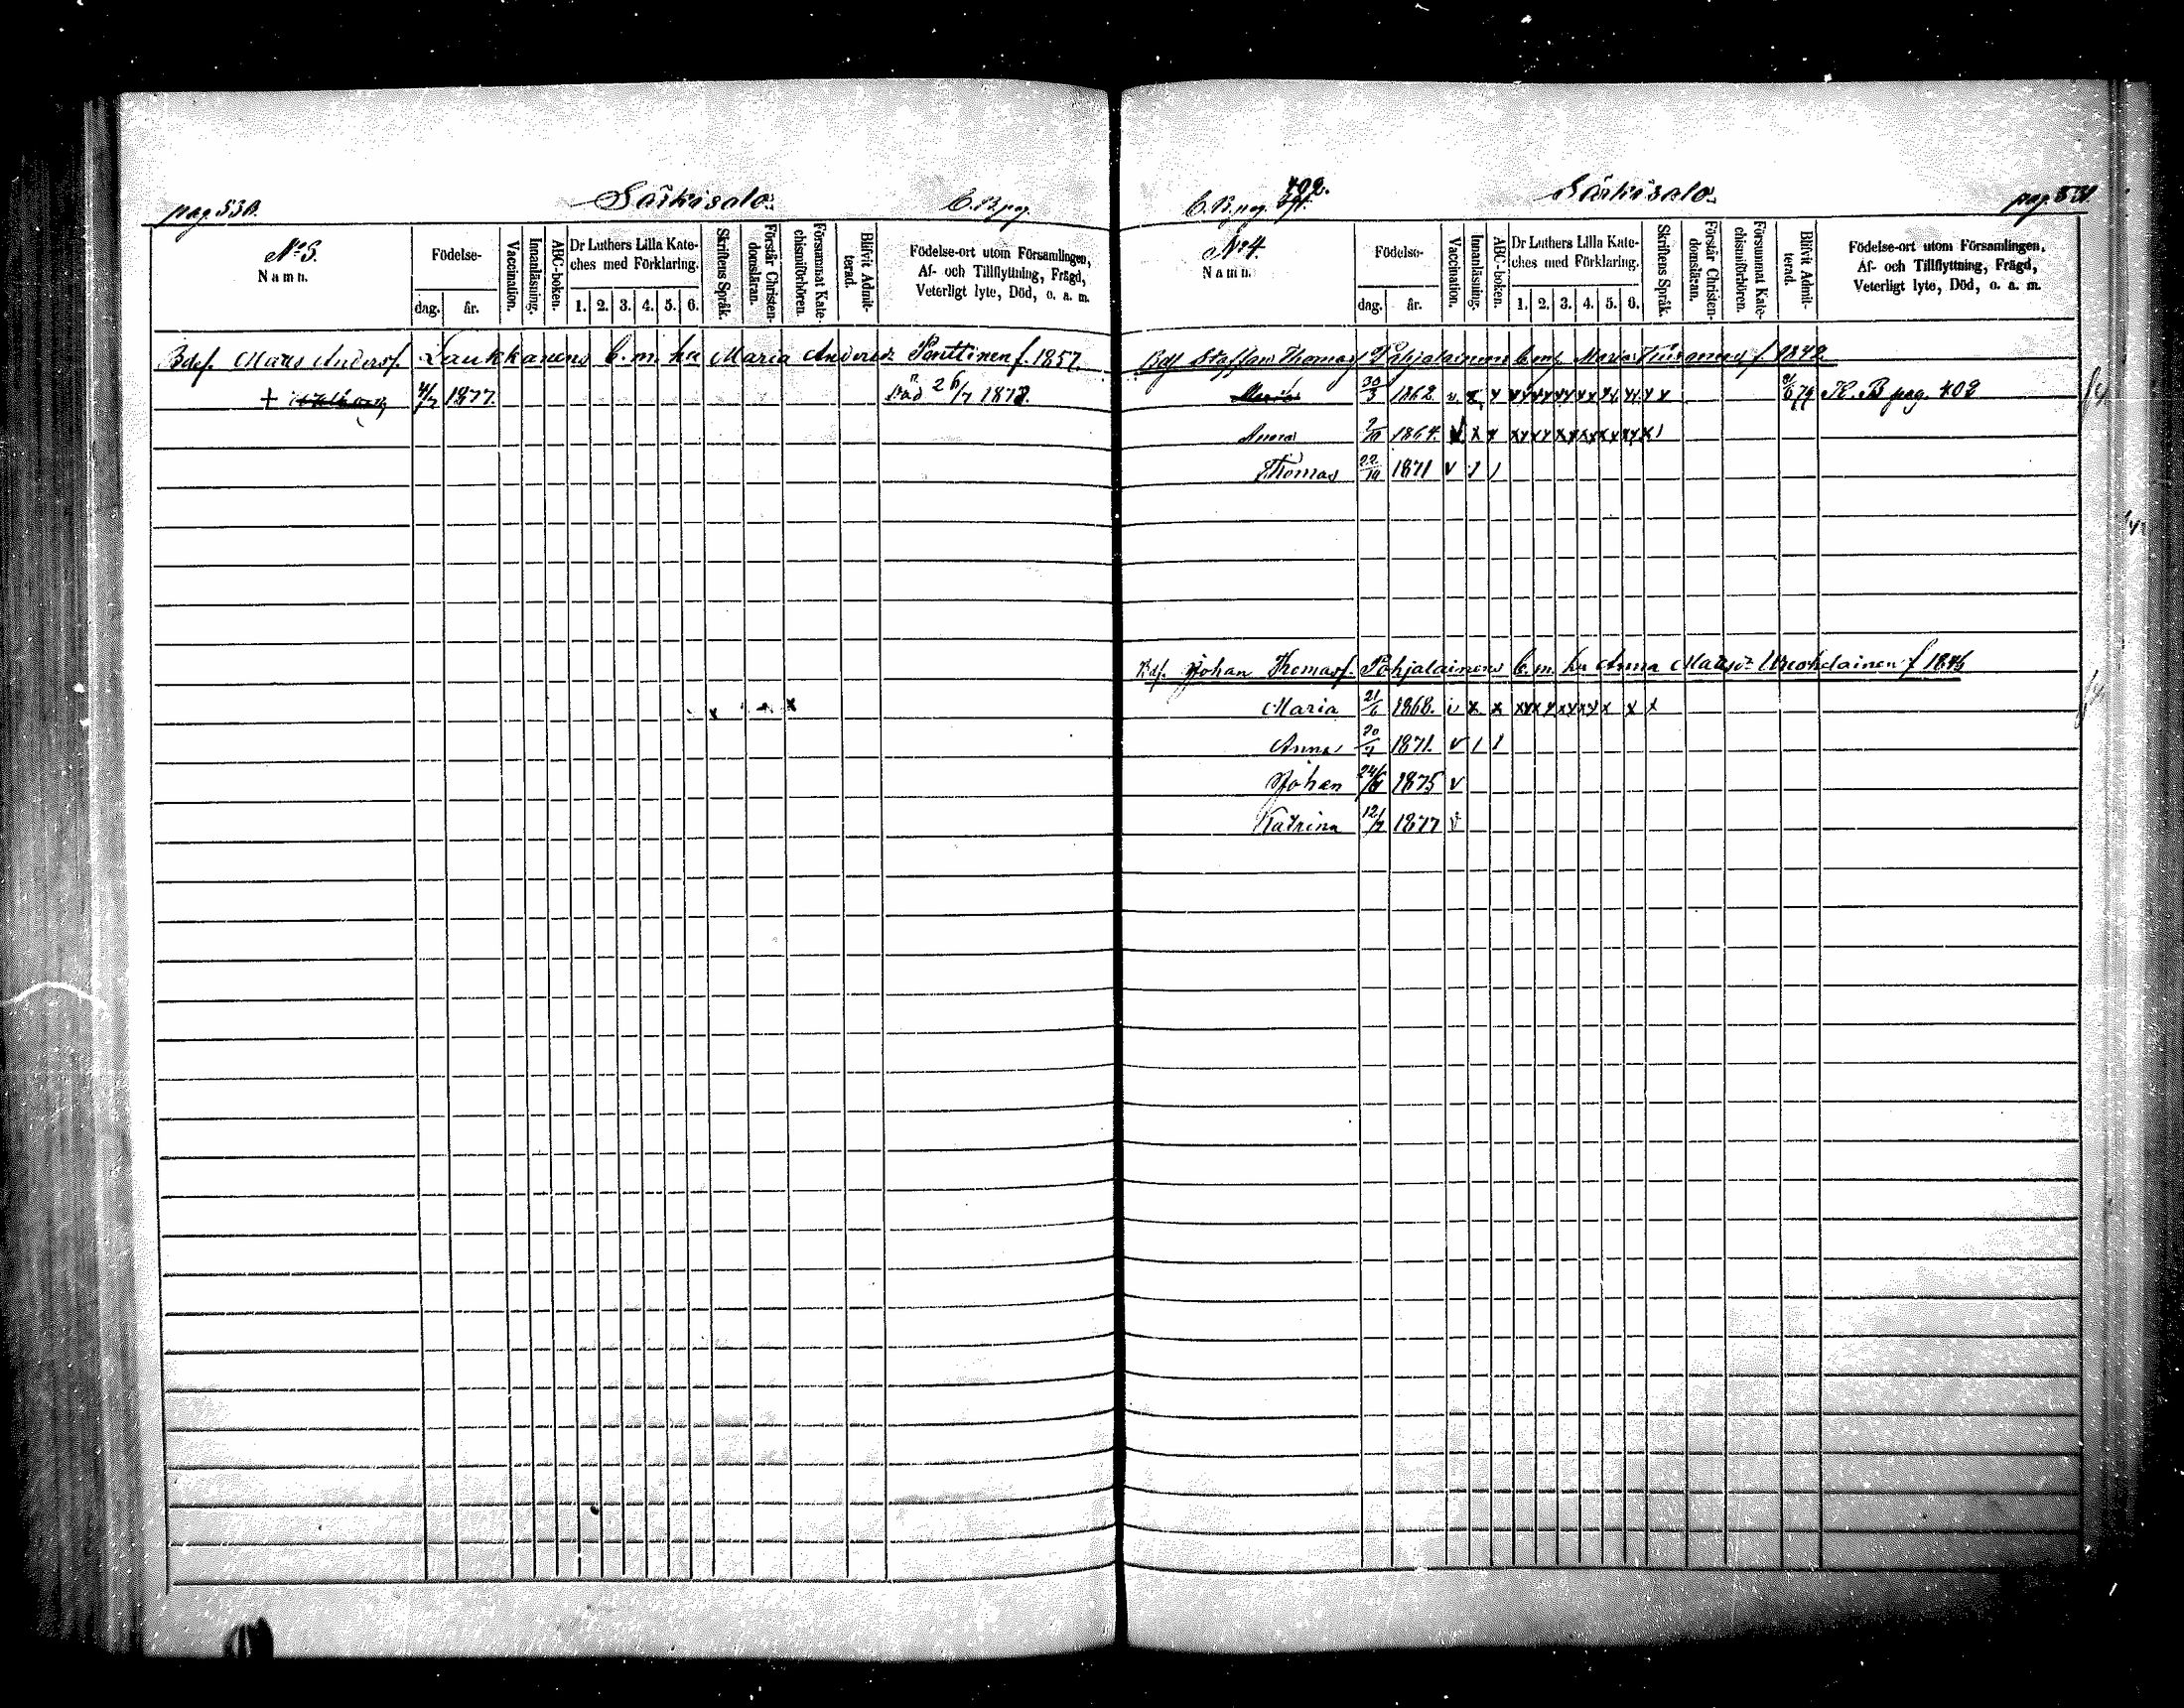 pag. 530.
Särkisalo.
C.B. pg.
N:o 3.
Namn.
Födelse-
dag.
år.
Vaccination.
Innanläsning.
ABC-boken.
Dr Luthers Lilla Kate-
ches med Förklaring.
1. 2. 3. 4. 5. 6.
Skriftens Språk.
Förstår Christen-
domsläran.
Försummat Kate-
chismiförhören.
Blifvit Admit-
terad.
Födelse-ort utom Församlingen,
Af- och Tillflyttning, Frägd,
Veterligt lyte, Död, o. a. m.
Bdes. Mats Andersf. Laukkanens b. m. hu Maria Andersd: Penttinen f. 1857.
+ 4/7 1877. Död 26/7 1878.
C.B. pg. 402.
Särkisalo.
pag. 531.
N:o 4.
Namn.
Födelse-
dag.
år.
Vaccination.
Innanläsning.
ABC-boken.
Dr Luthers Lilla Kate-
ches med Förklaring.
1. 2. 3. 4. 5. 6.
Skriftens Språk.
Förstår Christen-
domsläran.
Försummat Kate-
chismiförhören.
Blifvit Admit-
terad.
Födelse-ort utom Församlingen,
Af- och Tillflyttning, Frägd,
Veterligt lyte, Död, o. a. m.
Staffan Thomasf Pohjalainens b. m. Maria f 1842
Maria 30/3 1862 v x x K. B pag. 402
Anna 1864. v x x
Thomas 22/10 1871 v 1 1
Bdf. Johan Thomasf. Pohjalainens b. m. hu Anna Matsd: f 1846
Maria 21/6 1868. v x x
Anna 1871. v 1 1
Johan 1875 v
Katrina 12/7 1877 v